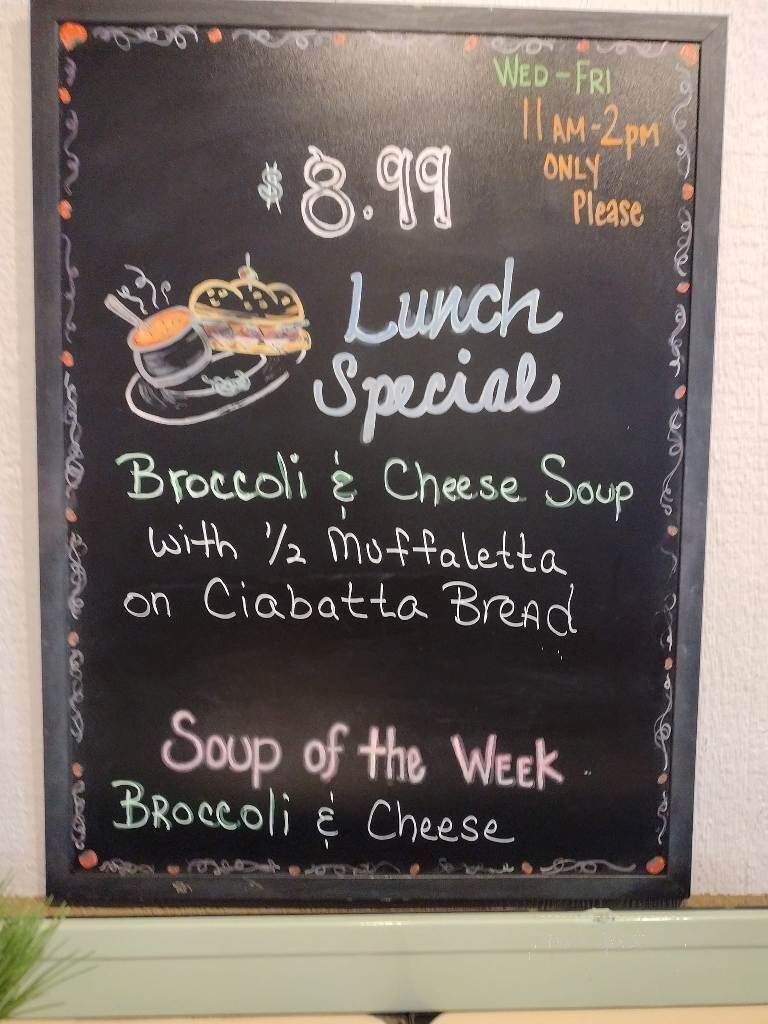 WED-FRI
11AM-2pm
ONLY
Please
$8.99
Lunch
Special
Broccoli & Cheese Soup
with 1/2 Muffaletta
on Ciabatta BREAd
Soup of the WEEK
BROCCOLi & Cheese